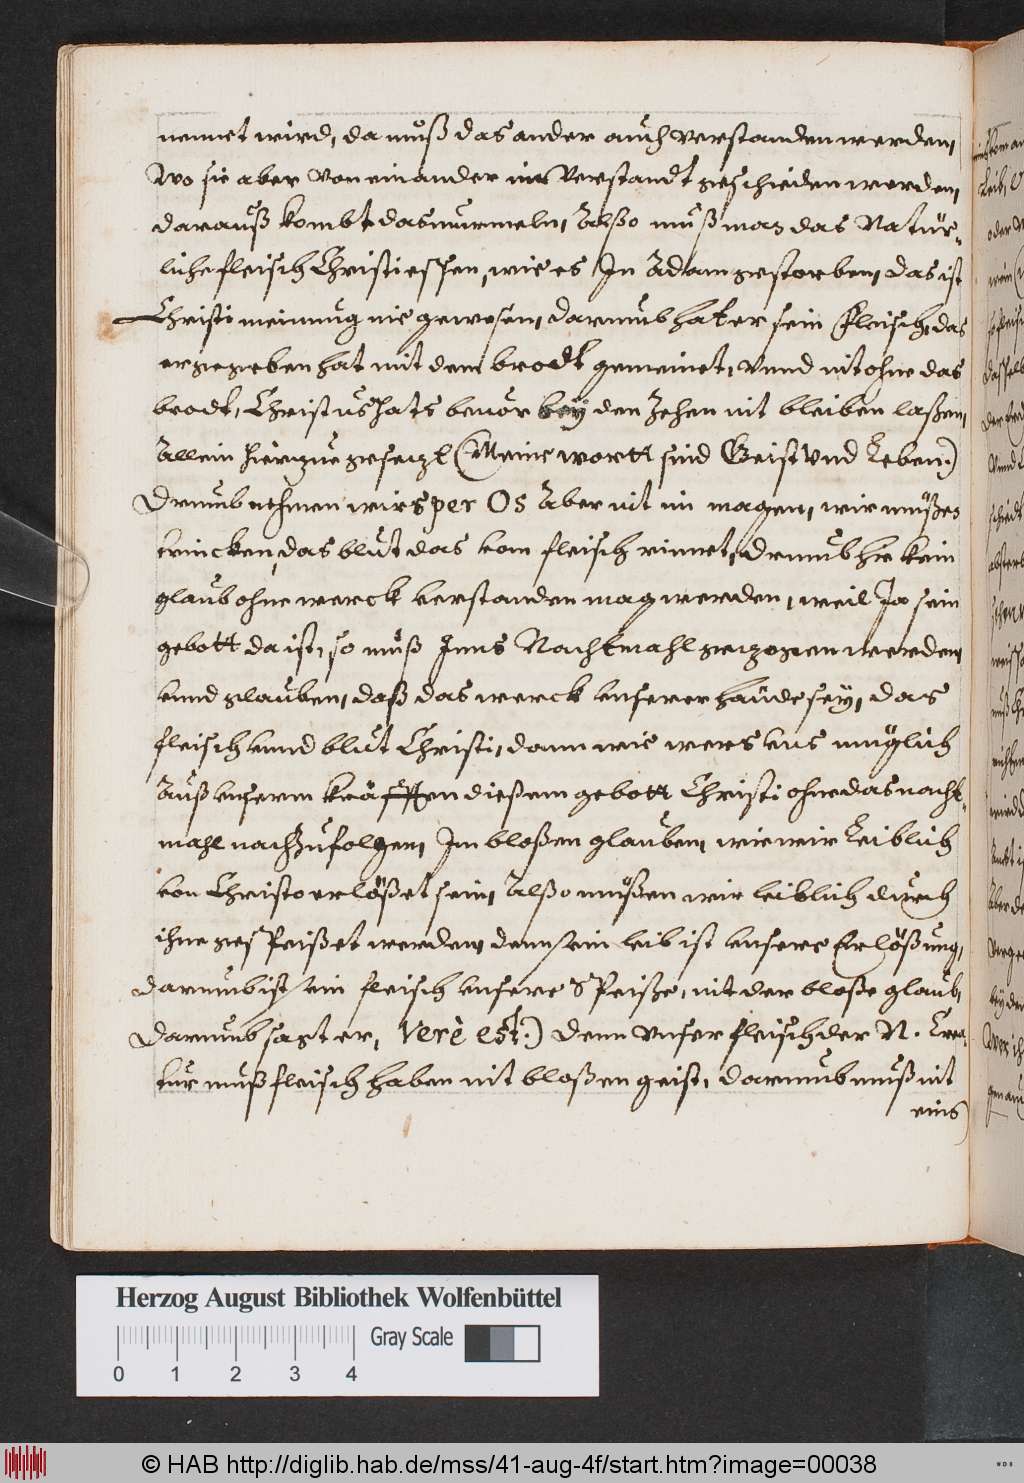 nennet wird, da muß das ander auch verstanden werden,
Wo sie aber von einander im Verstandt geschieden werden,
darauß kombt das murmeln, Alßo muß man das Natür-
liche fleisch Christi essen, wie es In Adam gestorben, das ist
Christi meinung nie gewesen, darumb hat er sein fleisch, das
er gegeben hat mit dem brodt gemeinet, Vnnd nit ohne das
brodt, Christus hats beuor bey den Zehen nit bleiben laßen,
Allein hierzue gesezt (Meine wortt sind Geist Vnd Leben.)
Drumb nehmen wirs per Os Aber nit im magen, wir müßen
trincken, das blut das vom fleisch rinnet, drumb hie kein
glaub ohne werck verstanden mag werden, weil Ja sein
gebott da ist, so muß Inns Nachtmahl gezogen werden,
vnnd glauben, daß das werck vnserer hände sey, das
fleisch vnnd blut Christi, dann wie wers vns müglich
Auß vnsern kräfften dießem gebott Christi ohne das nacht-
mahl nachzufolgen, Im bloßen glauben, wie wir Leiblich
von Christo erlößet sein, Alßo müßen wir leiblich durch
ihne gespeißet werden, denn sein leib ist vnsere Erlößung,
darumb ist sein fleisch vnsere Speiße, nit der bloße glaub,
Darumb sagt er, Verè est.) denn vnser fleisch der N. Crea-
tur muß fleisch haben nit bloßen geist, darumb muß nit
eins
Herzog August Bibliothek Wolfenbüttel
Gray Scale
0 1 2 3 4
© HAB http://diglib.hab.de/mss/41-aug-4f/start.htm?image=00038